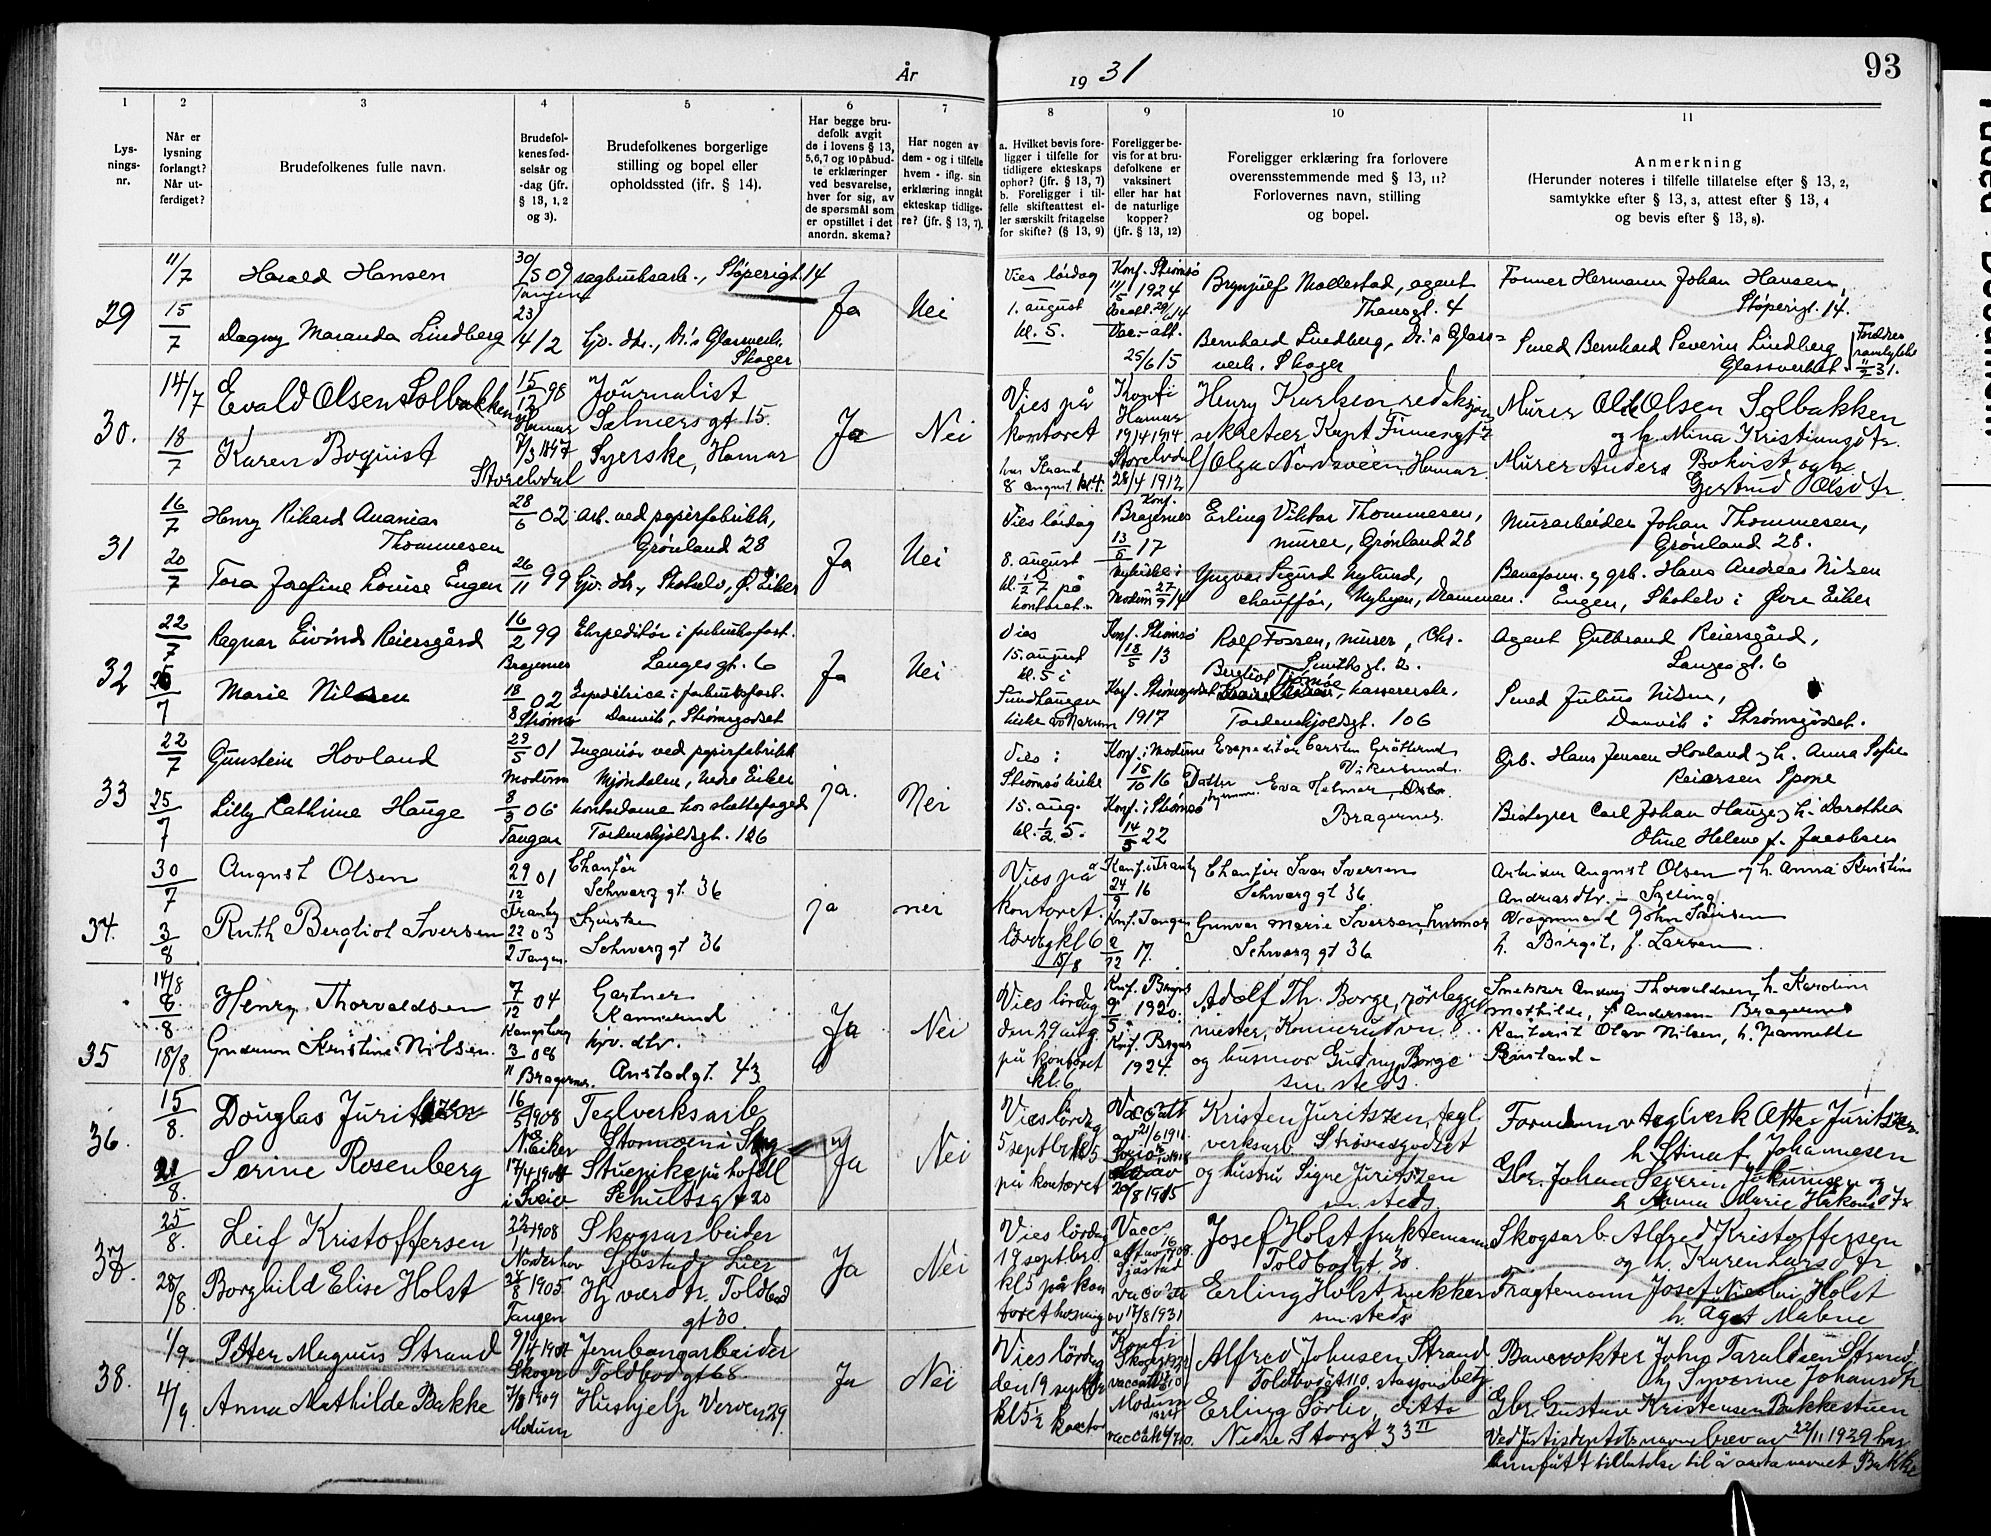 År 1931
93
1 2 3 4 5 6 7 8 9 10 11
Lys-
nings-
nr.
Når er
lysning
forlangt?
Når ut-
ferdiget?
Brudefolkenes fulle navn.
Brudefol-
kenes fød-
selsår og
-dag (jfr.
§ 13, 1, 2
og 3).
Brudefolkenes borgerlige
stilling og bopel eller
opholdssted (jfr. § 14).
Har begge bru-
defolk avgit
de i lovens § 13,
5,6,7 og 10 påbud-
te erklæringer
ved besvarelse,
hver for sig, av
de spørsmål som
er opstillet i det
anordn. skema?
Har nogen av
dem - og i tilfelle
hvem - iflg. sin
erklæring inngått
ekteskap tidlige-
re? (jfr. § 13, 7).
a. Hvilket bevis fore-
ligger i tilfelle for
tidligere ekteskaps
ophør? (jfr. § 13, 7)
b. Foreligger i til-
felle skifteattest el-
ler særskilt fritagelse
for skifte? (§ 13, 9)
Foreligger be-
vis for at bru-
defolkene er
vaksinert
eller har hat
de naturlige
kopper?
(jfr. § 13, 12)
Foreligger erklæring fra forlovere
overensstemmende med § 13, 11?
Forlovernes navn, stilling
og bopel.
Anmerkning
(Herunder noteres i tilfelle tillatelse efter § 13, 2,
samtykke efter § 13, 3, attest efter § 13, 4
og bevis efter § 13, 8).
29
11/7
15/7
Harald Hansen
Dagny Maranda Lindberg
30/5 09
Tangen
23/4 12
sagbruksarb., Støperigt. 14
hjv. dtr., Dr.s Glassverk,
Skoger
Ja
Nei
Vies lördag
1. august
kl. 5.
Konf. Strømsø
1924
Vac.-att.
25/6 15
Brynjulf Mollestad, agent
Thansgt. 4
Bernhard Lindberg, Dr.s Glass-
verk. Skoger
Former Hermann Johan Hansen,
Støperigt. 14.
Smed Bernhard Severin Lindberg
Glassverket
30.
14/7
18/7
Evald Olsen Solbakken
Karen Boquist
15/12 98
Hamar
7/3 1897
Storelvdal
Journalist
Sælmersgt 15.
Syerske, Hamar
Ja
Nei
Vies på
kontoret
8 august kl. 4.
Konf i
Hamar
19/4 1914
Storelvdal
28/4 1912
Henry Karlsen redaksjons
sekretær
Olga Nordsveen, Hamar
Murer Ole Olsen Solbakken
og h. Mina Kristiansdtr.
Murer Anders Bokvist og h.
Gjertrud Olsdtr.
31
16/7
20/7
Henry Rikard Ananias
Thommesen
Tora Josefine Louise Engen
28/6 02
26/11 99
arb. ved papirfabrikk,
Grønland 28
hjv. dtr., Skotselv, Ø. Eiker
Ja
Nei
Vies lördag
8. august
kl. 1/2 7 på
kontoret.
Konf.
Bragernes
13/5 17
Nykirke i
Modum 27/9 14
Erling Viktor Thommesen,
murer, Grønland 28
Yngvar Sigurd Nylund,
chauffør, Nybyen, Drammen.
Murarbeider Johan Thommesen,
Grønland 28.
Banefom. og grb. Hans Andreas Nilsen
Engen, Skotselv i Øvre Eiker
32
22/7
25/7
Ragnar Eivind Reiersgård
Marie Nilsen
16/2 99
Bragernes
18/8 02
Strømsø
Ekspeditør i forbruksfor.
Langesgt. 6
Expeditrice i forbruksfor.
Danvik, Strømsgodset
Ja
Nei
Vies
15. august
kl. 5 i
Sundhaugen
kirke
Konf. Strømsø
18/5 13
Konf. Strømsgodset
1917
Rolf Fossen, murer, Chr.
Smithsgt.
Bergliot Tromøe, kassererske,
Tordenskjoldsgt. 106
Agent Gulbrand Reiersgård,
Langesgt. 6
Smed Julius Nilsen,
Danvik i Strømsgodset.
33
22/7
25/7
Gunstein Hovland
Lilly Cathrine Hauge
29/5 01
Modum
8/3 06
Tangen
Ingeniør ved papirfabrikk
Mjøndalen, nedre Eiker
kontordame hos skattefoged
Tordenskjoldsgt. 106
ja.
Nei
Vies i
Strømsø kirke
15. aug.
kl. 1/2 5.
Konf. i Modum
15/10 16
Konf. i Strømsø
14/5 22
Ekspeditør
Vikersund
Eva Helmer
Bragernes.
Grb. Hans Jensen Hovland og h. Anna Sofie
Reiersen Spone
Bestyrer Carl Johan Hauge og h. Dorothea
Oline Helene f. Jacobsen
34.
30/7
3/8
August Olsen
Ruth Bergliot Iversen
29/12 01
Tranby
22/2 03
Tangen.
Chaufør
Schwarz gt. 36
Syerske
Schwarz gt 36
ja
nei
Vies på
kontoret.
lördag kl 6
15/8
Konf. i Tranby
24/9 16
Konf. Tangen
2/12 17.
Chauffør Ivar Iversen
Schwarz gt 36.
Gunvor Marie Iversen, husmor
Schwarz gt 36
Arbeider August Olsen og h. Anna Kristine
Andreasdtr. - Sylling.
Vognmand John Iversen
h. Birgit, f. Larsen.
35
14/8
18/8
Henry Thorvaldsen
Gudrun Kristine Nilsen.
7/12 04
Kongsberg
3/11 08
Bragernes.
Gartner
Konnerud
hjv. dtr.
Anstadgt. 43
Ja
Nei
Vies lördag
den 29 aug.
på kontoret
kl. 6
1920.
Konf. Bragernes
1924.
Adolf Th. Borge, rørlegger
mester, Konnerudvn.
og husmor Gudny Borge
smsteds.
Snekker Anders Thorvaldsen, h. Karoline
Mathilde, f. Andersen Bragernes
Kontorist Olav Nilsen, h. Jeannette
Rustand -
36.
15/8.
21/8.
Douglas Juritzen
Serine Rosenberg
16/5 1908
N. Eiker
17/4 1904
i Sveio
Teglverksarb
Stormoen i Skog
Stuepike på hotell
Schultzgt 20
Ja
Nei
Vies lördag
5 septbr kl 5
på kontoret
Vacc. att
20/8 1915
Kristen Juritzen, tegl
verksarb Strømsgodset
og hustru Signe Juritzen
smsteds.
Formann v teglverk Otto Juritzen
h Stina f. Johannesen
Gbr. Johan Severin Jokumsen og
h Anna Marie Håkonsdtr
37.
25/8.
28/8.
Leif Kristoffersen
Borghild Elise Holst
1908
Norderhov
1905
Tangen
Skogsarbeider
Sjåstad Lier
Hj værd tr. Toldbod
gt 30.
Ja
Nei
Vies lördag
19 septbr.
kl 5 på kon
toret
Vacc
att av
Sjåstad
av 17/8 1931
Josef Holst fraktemann
Toldbodgt. 30.
Erling Holst, snekker
smsteds
Skogsarb. Alfred Kristoffersen
og h. Karen Larsdtr
Fragtemann Josef Nicolai Holst
h. Agot Malene
38.
1/9.
4/9.
Petter Magnus Strand
Anna Mathilde Bakke
9/4 1904
Skoger
7/8 1909
Modum
Jernbanearbeider
Toldbodgt 68.
Hushjelp Verven 29.
Ja
Nei
Vies lördag
den 19 septbr
kl 5½ kontor
Konf i
Skoger
Modum
1924
Alfred Johnsen Strand
Toldbodgt 110. stasjonsbetj.
Erling Sørlie, ditto
Nedre Storgt. 33 II
Banevokter Johs Taraldsen Strand,
h. Syverine Johansdtr
Gbr. Gustav Kristensen Bakkestuen
Ved Justisdeptets navnebrev av 22/11 1929 har
hun fått tillatelse til å anta navnet Bakke